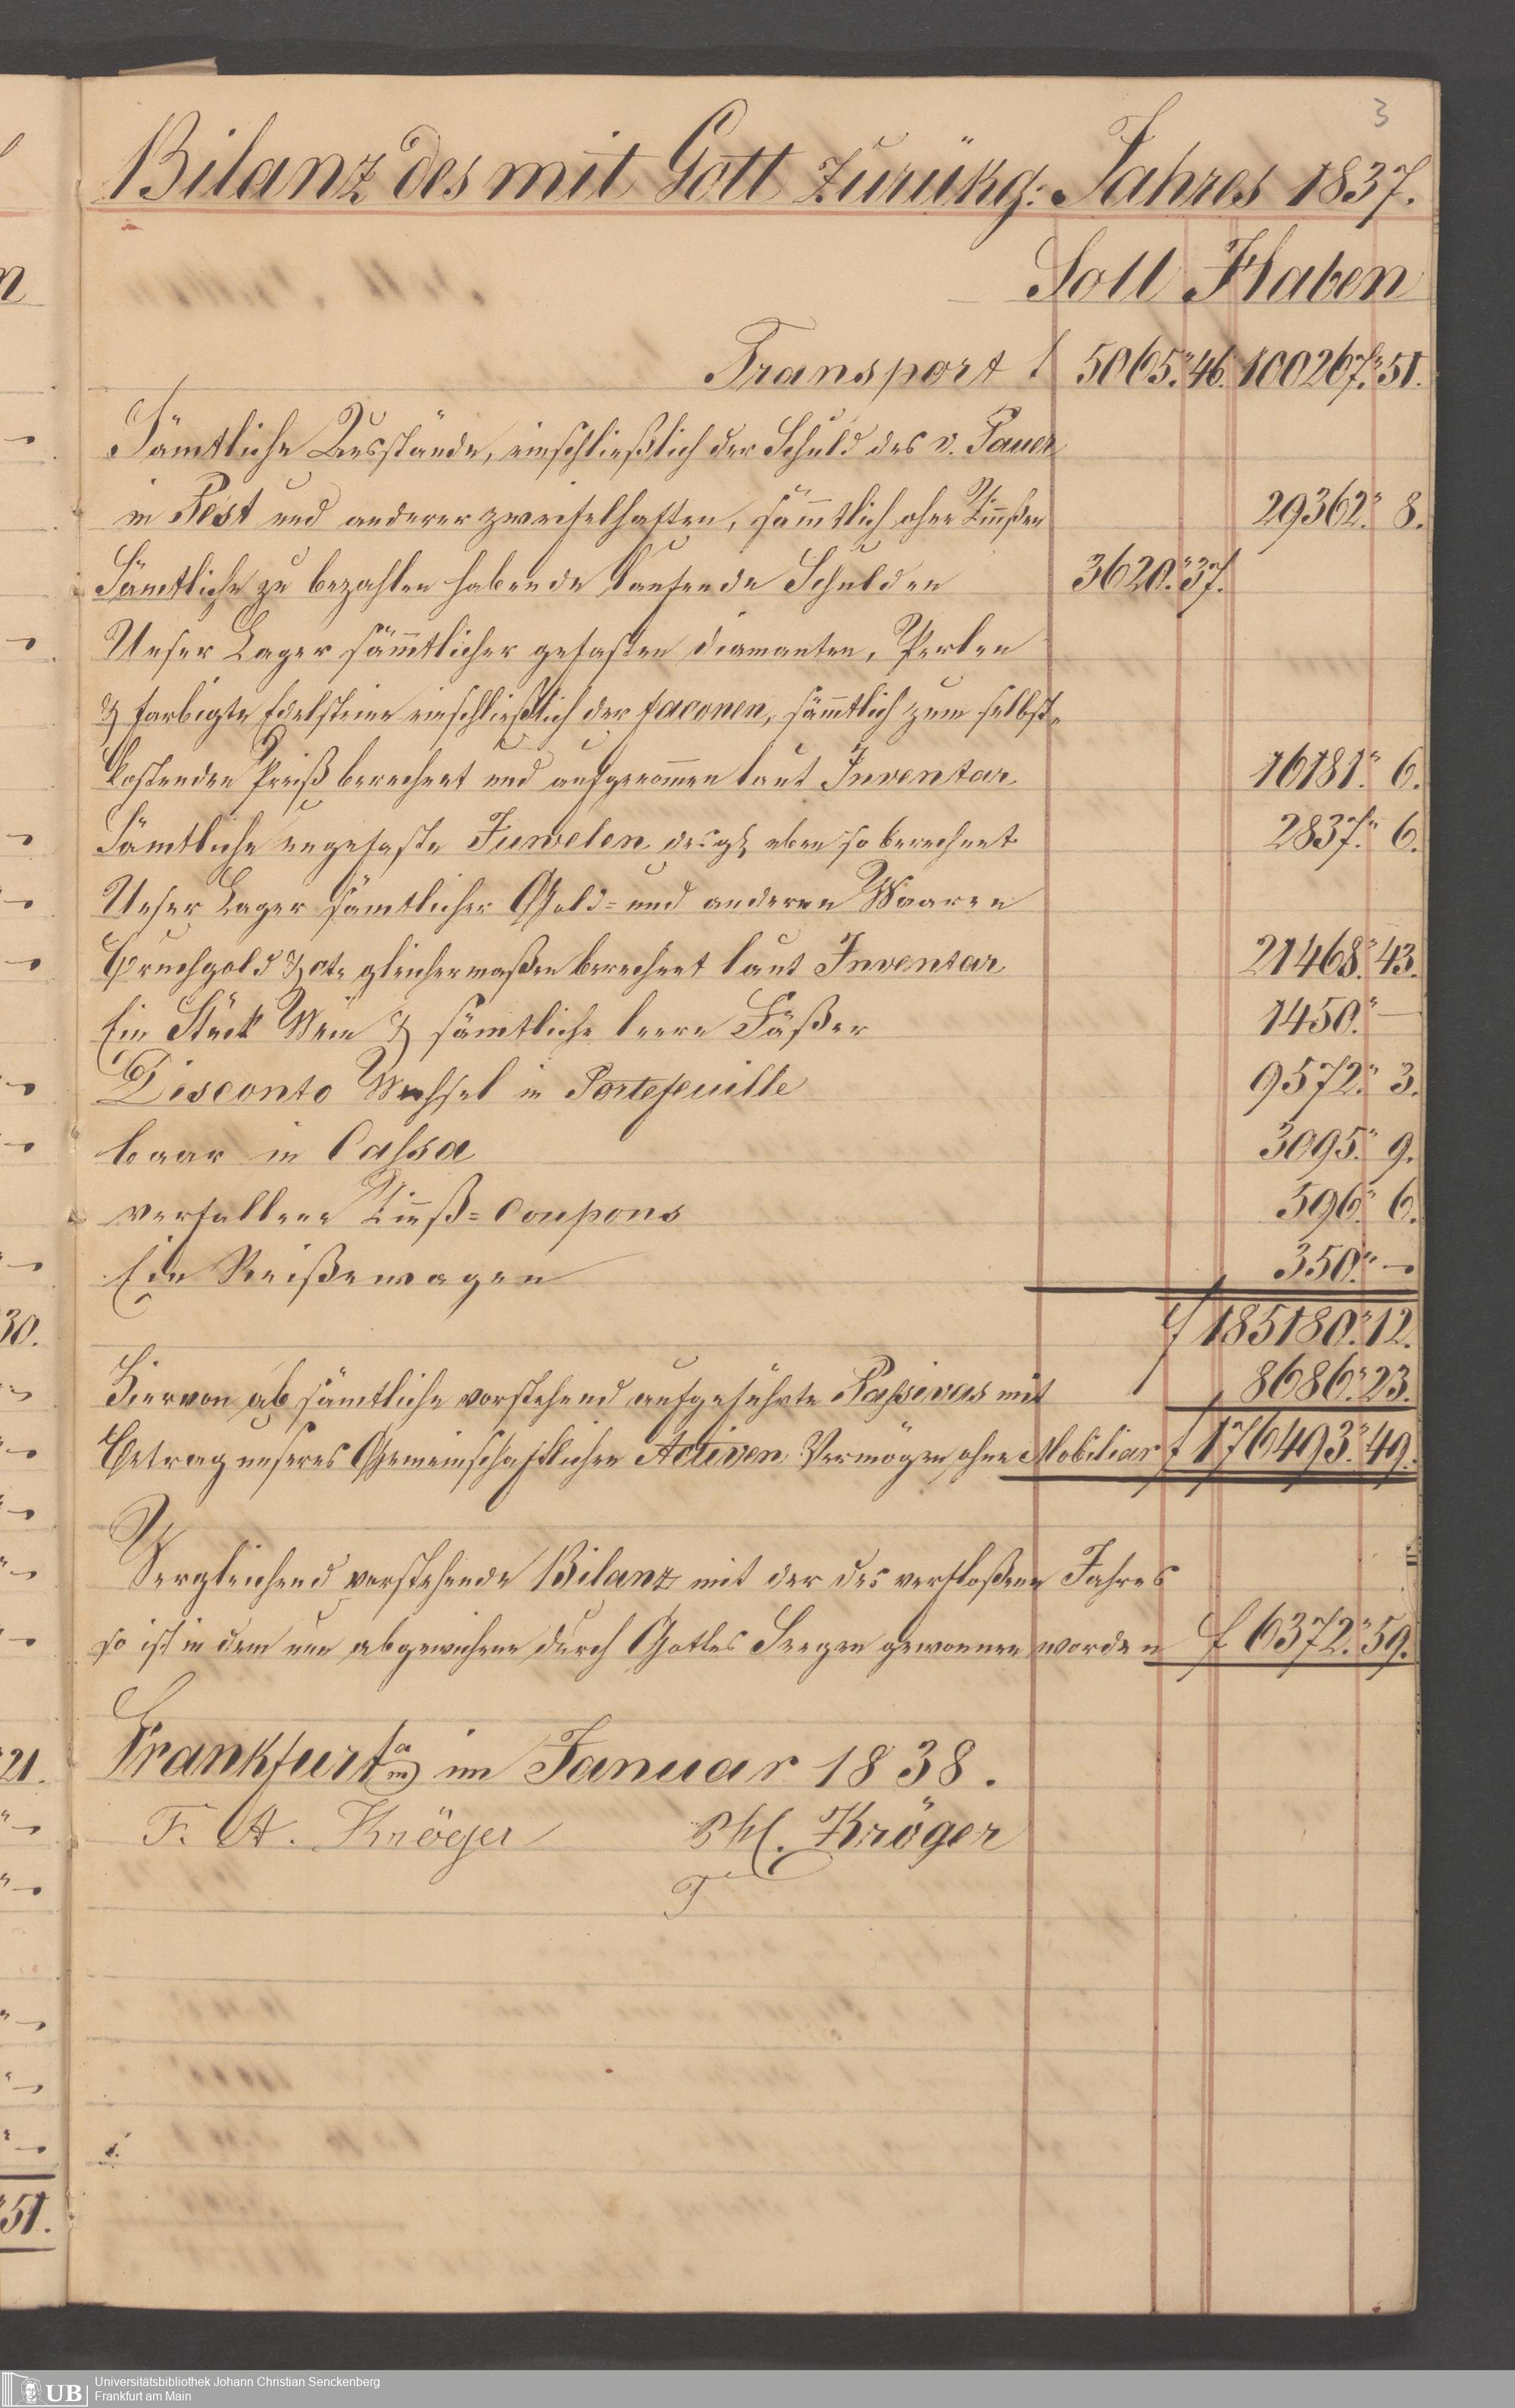 3
Bilanz des mit Gott zurükg: Jahres 1837.
Soll Haben
Transport f 5065." 46. 100267." 51.
Sämtliche Ausstände, einschließlich der Schuld des v. Pauer
in Pest und anderer zweifelhaften, sämtlich ohne Zinnßen 29362." 8.
Sämtliche zu bezahlen habende laufende Schulden 3620." 37.
Unser Lager sämtlicher gefasten Diamanten, Perlen
& farbigte Edelsteine einschließlich der faconen, sämtlich zum selbst-
kostenden Preiß berechnet und aufgenommen laut Inventar 16181." 6.
Sämtliche ungefaste Juwelen desgl eben so berechnet 2837." 6.
Unser Lager sämtlicher Gold= und anderen Waaren
Bruchgold & ct. gleichermaßen berechnet laut Inventar 21468." 43.
Ein Stück Wein & sämtliche leere Fäßer 1450." —
Disconto Wechsel in Portefeuille 9572." 3.
baar in Cassa 3095." 9.
verfallene Zinnß=Coupons 596." 6.
Ein Reißewagen 350." —
f 185180." 12.
Hiervon ab sämtliche vorstehend aufgeführte Passivas mit 8686." 23.
Betrag unseres Gemeinschaftlichen Activen Vermögen ohne Mobiliar f 176493." 49.
Vergleichend vorstehende Bilanz mit der des verfloßenen Jahres
so ist in dem nun abgewichenen durch Gottes Seegen gewonnen worden f 6372." 59.
Frankfurt a/m im Januar 1838.
F. A. Kröger Phl. Kröger
n
30.
21.
51.
UB
Universitätsbibliothek Johann Christian Senckenberg
Frankfurt am Main